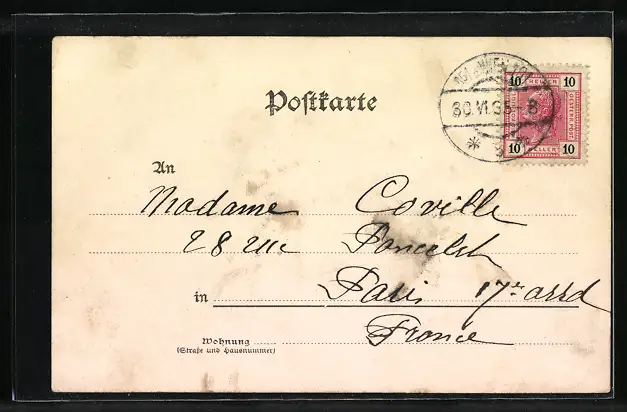 30.VI.05-8
10 HELLER 10
10 HELLER 10
OESTERR. POST
Postkarte
An
Madame Coville
28 rue Poncelet
in Paris 17e arrd
France
Wohnung
(Straße und Hausnummer)